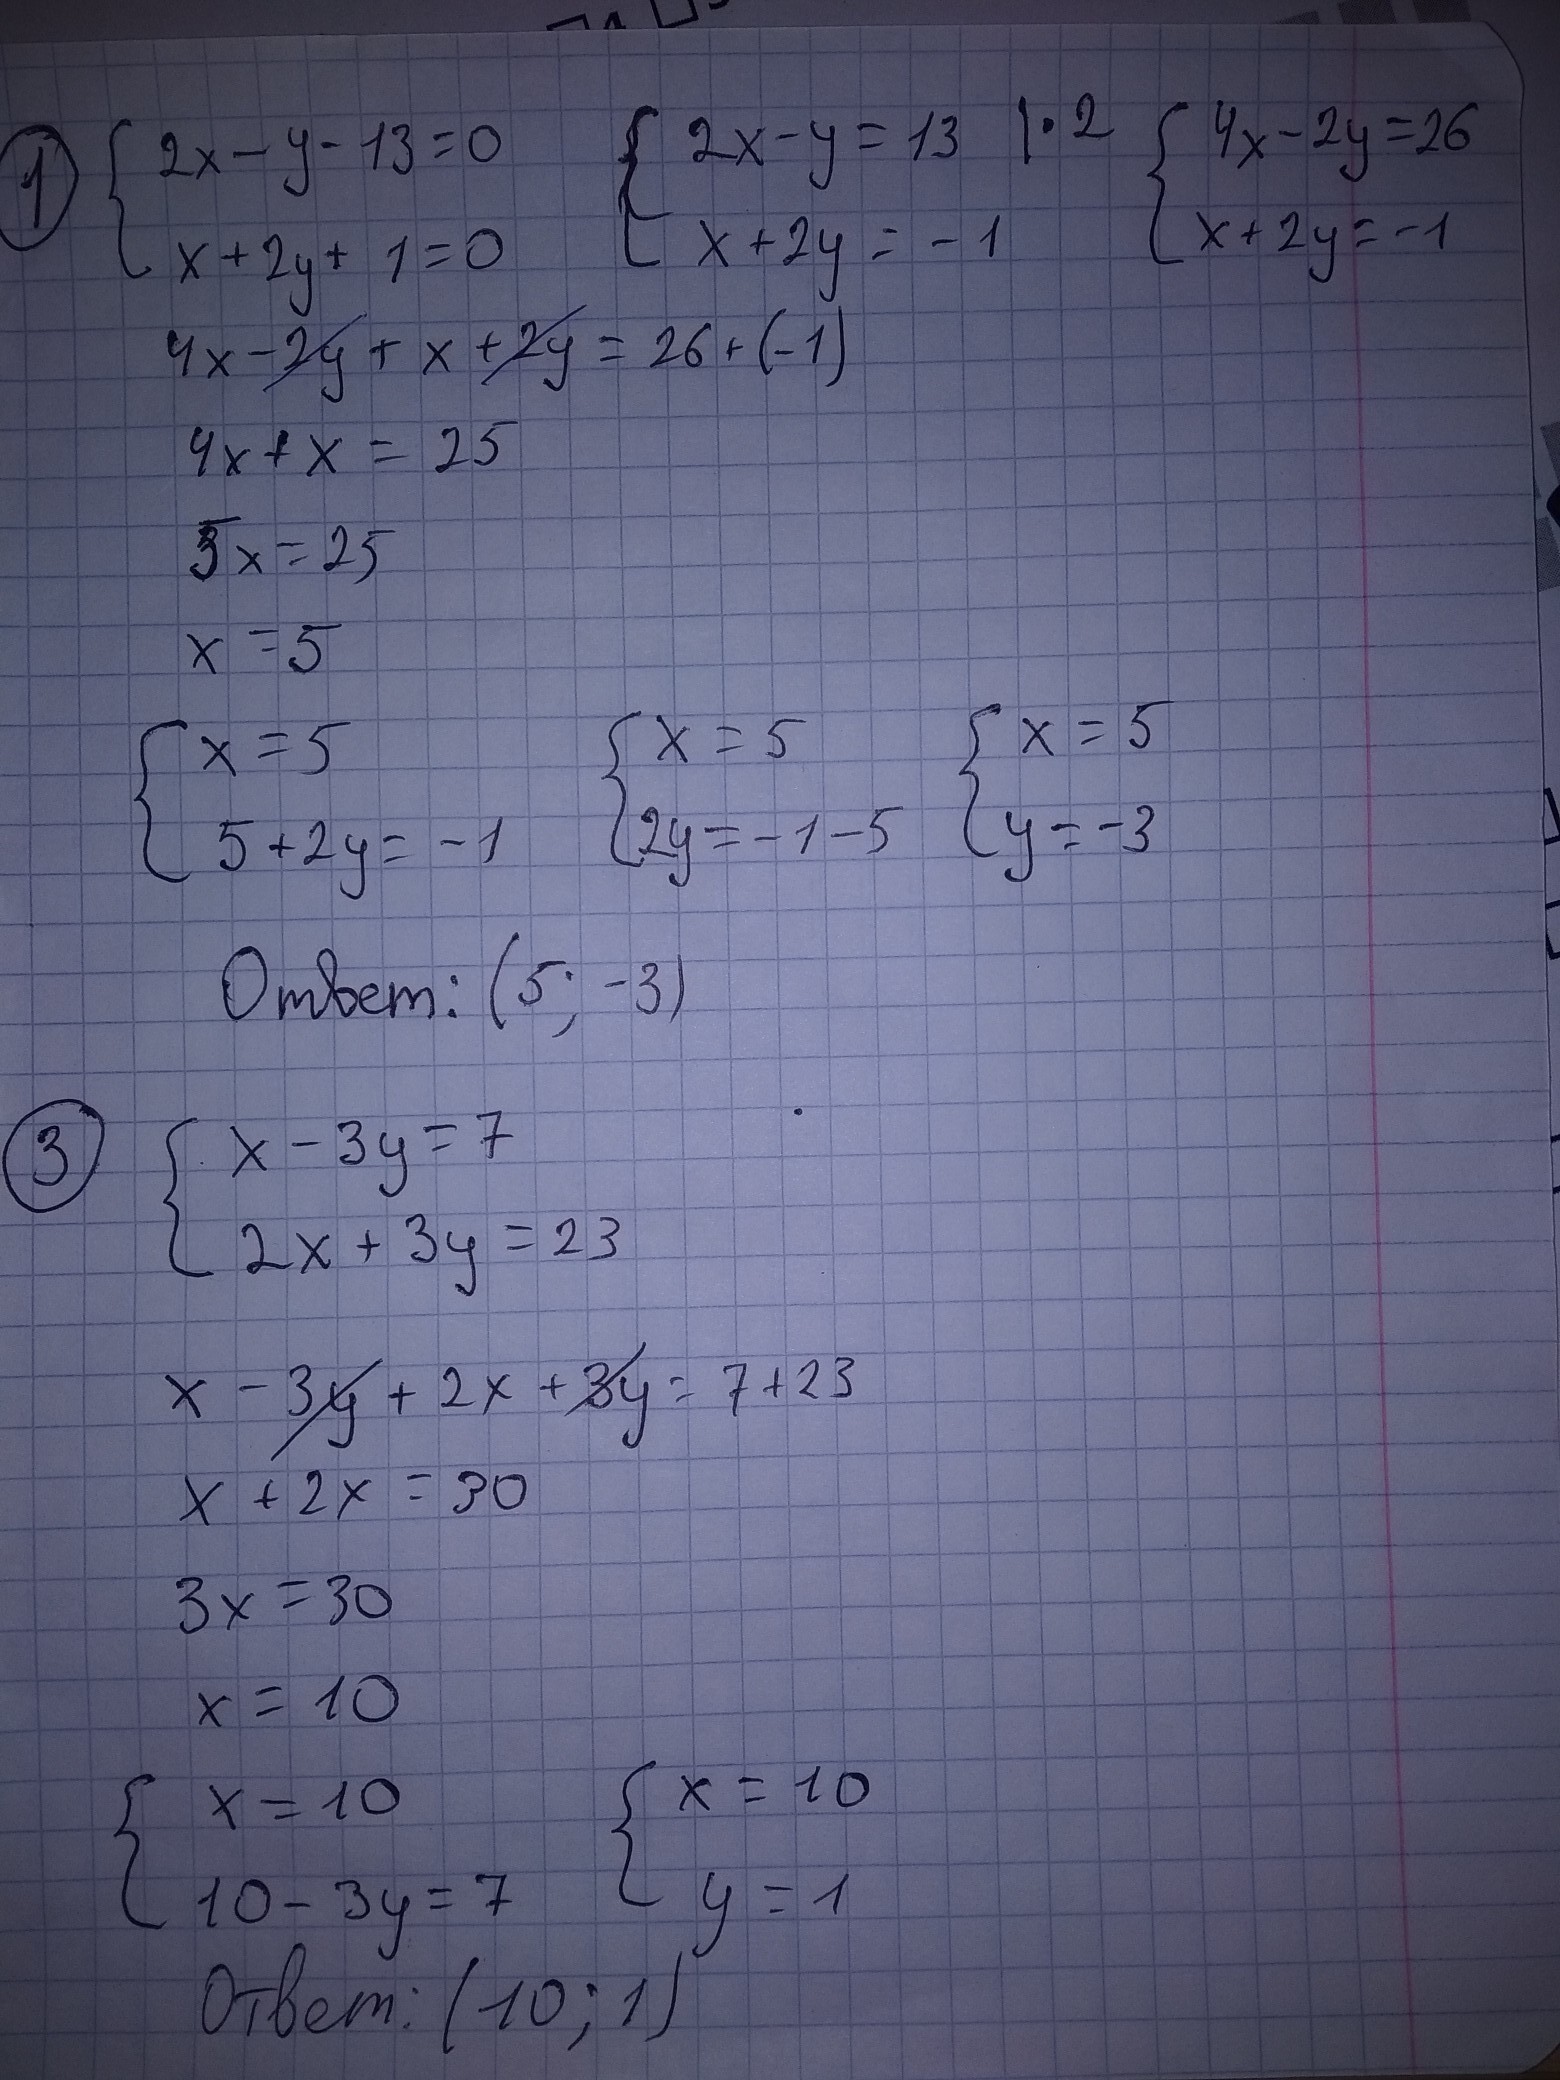 1 { 2x - y - 13 = 0 { 2x - y = 13 | · 2 { 4x - 2y = 26
x + 2y + 1 = 0 x + 2y = -1 x + 2y = -1
4x - 2y + x + 2y = 26 + (-1)
4x + x = 25
5x = 25
x = 5
{ x = 5 { x = 5 { x = 5
5 + 2y = -1 2y = -1 - 5 y = -3
Ответ: (5; -3)
3 { x - 3y = 7
2x + 3y = 23
x - 3y + 2x + 3y = 7 + 23
x + 2x = 30
3x = 30
x = 10
{ x = 10 { x = 10
10 - 3y = 7 y = 1
Ответ: (10; 1)